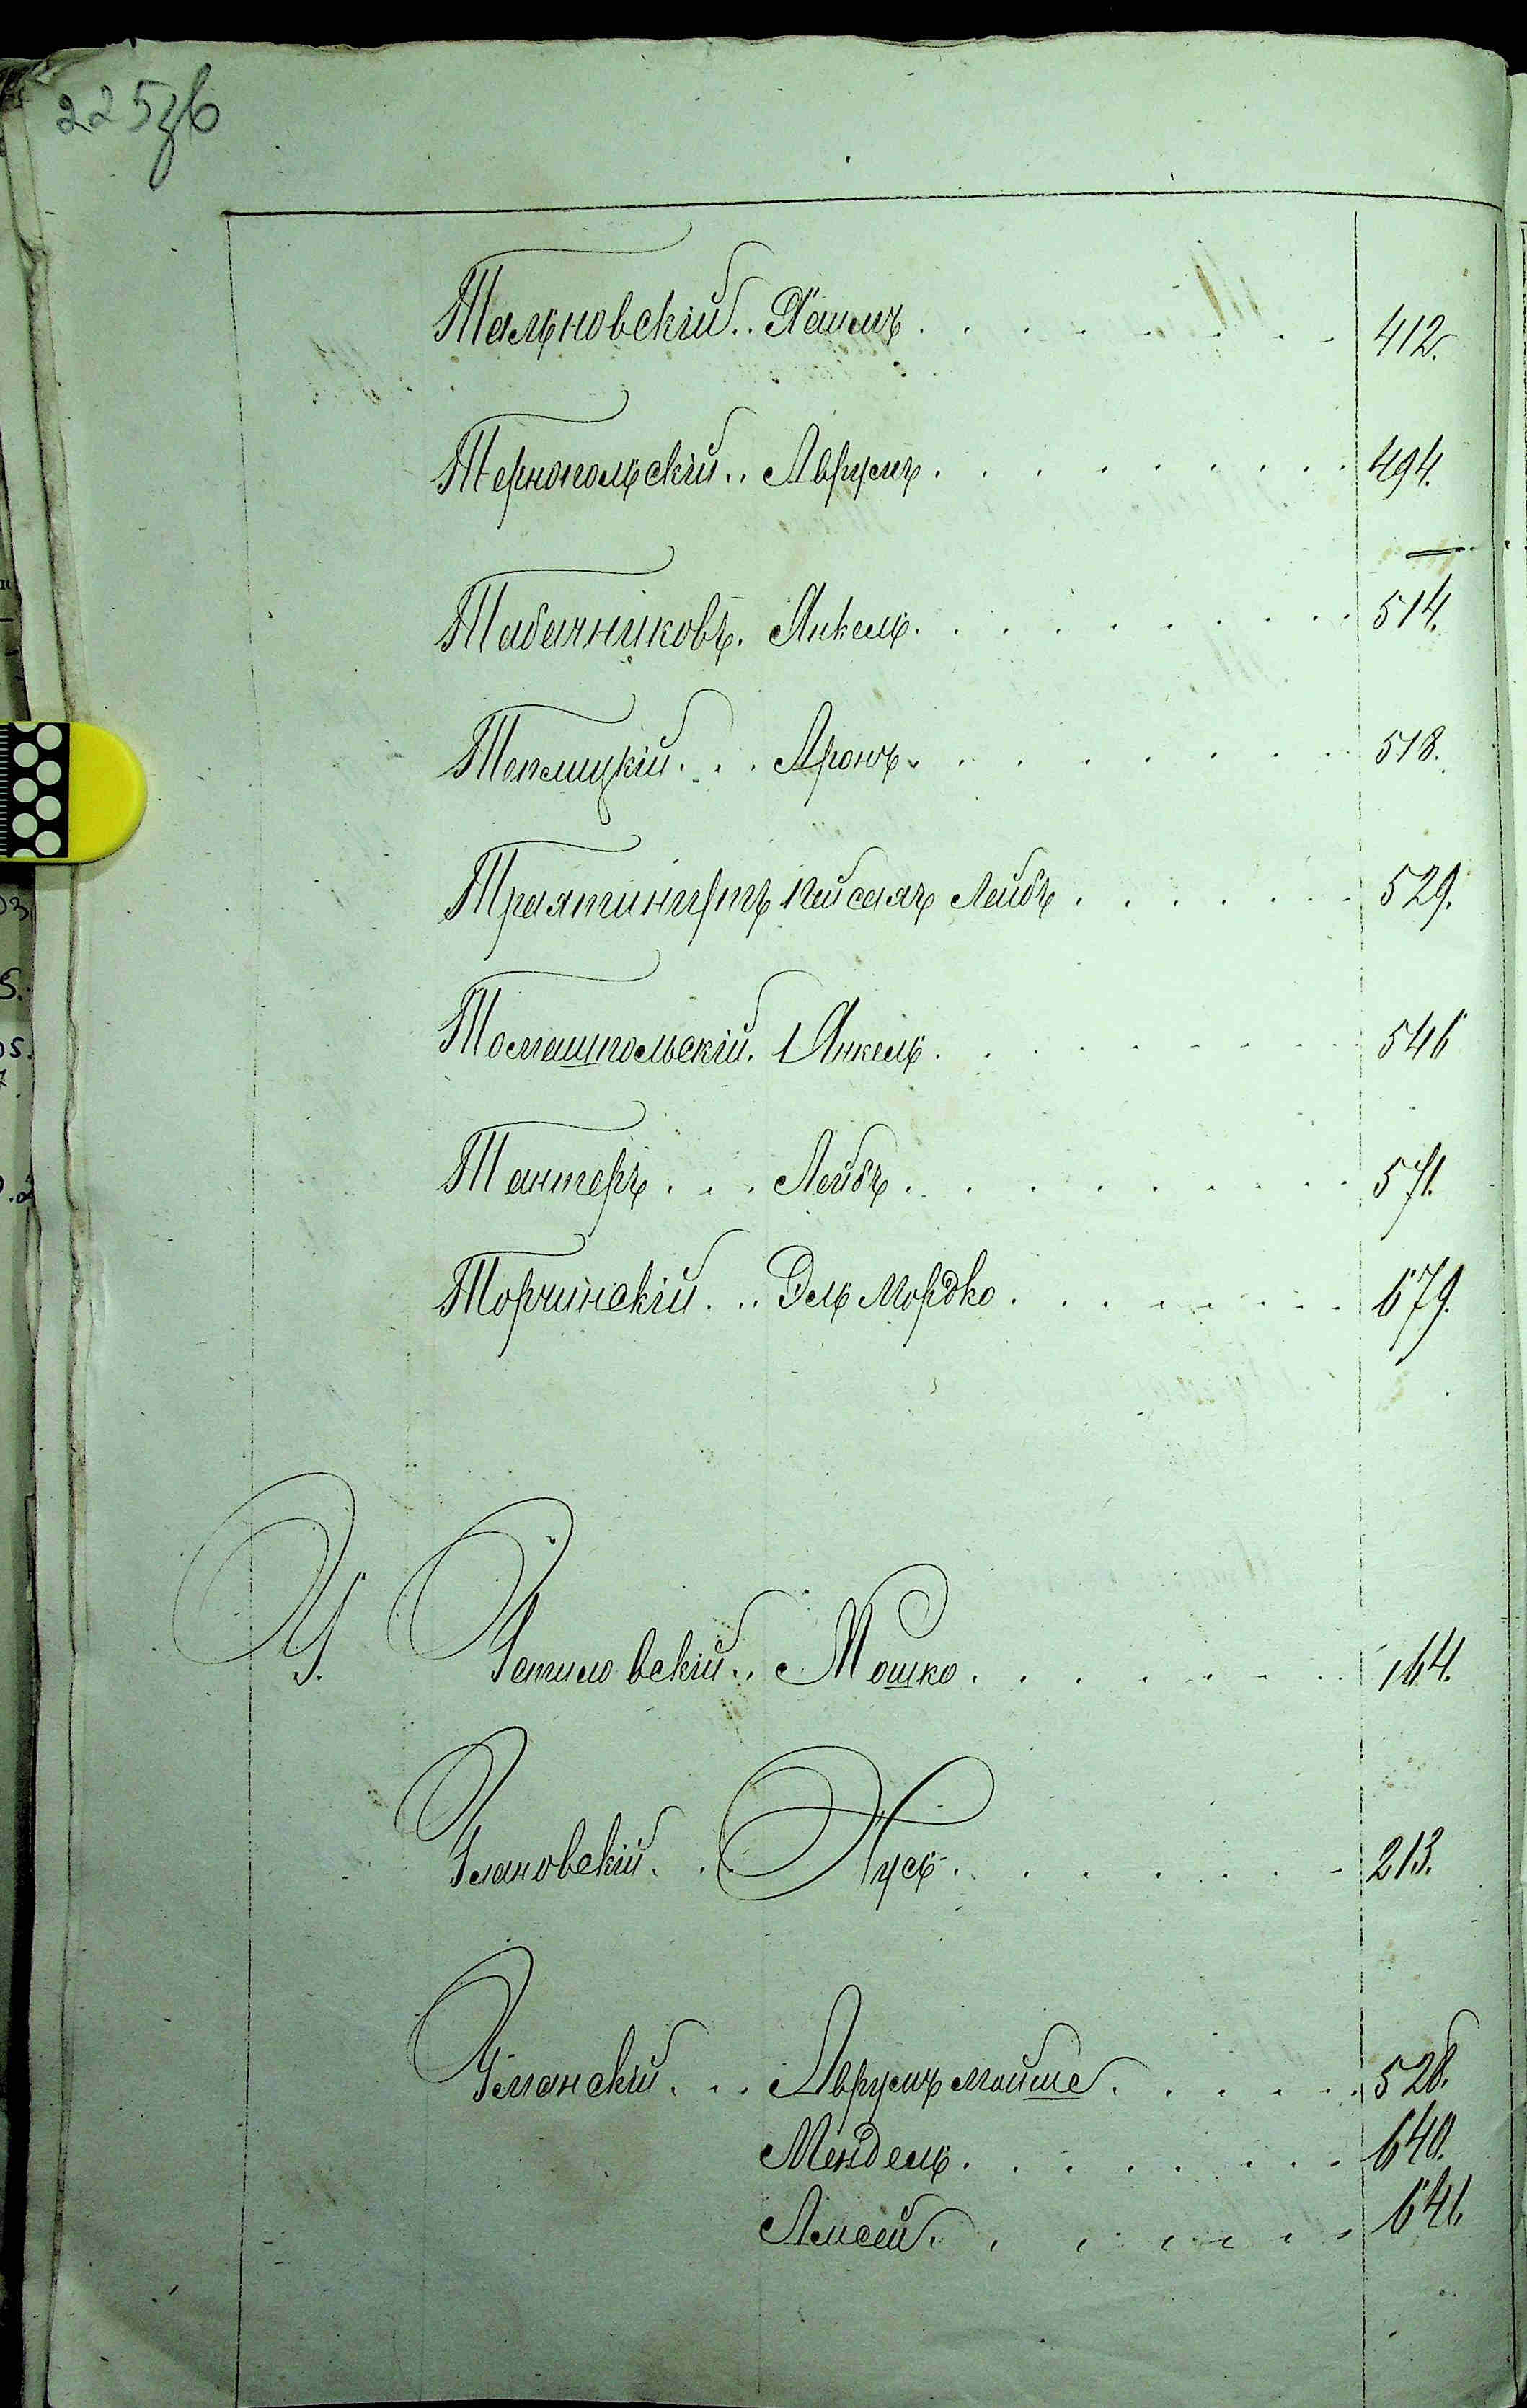 225зв
Тальновскій.. Хаимъ. 412.
Тернопольскій.. Аврумъ. 494.
Табачниковъ. Янкель. 514.
Теплицкій... Аронъ. 518.
Лейбъ. 529.
Томашпольскій. Янкель. 546
Тантеръ... Лейбъ. 571.
Торчинскій... Эль Мордко. 679.
У. Устиловскій.. Мошко. 164.
Улановскій... Нусъ. 213.
Уманскій... Аврумъ мойше. 528.
Мендель. 640.
641.